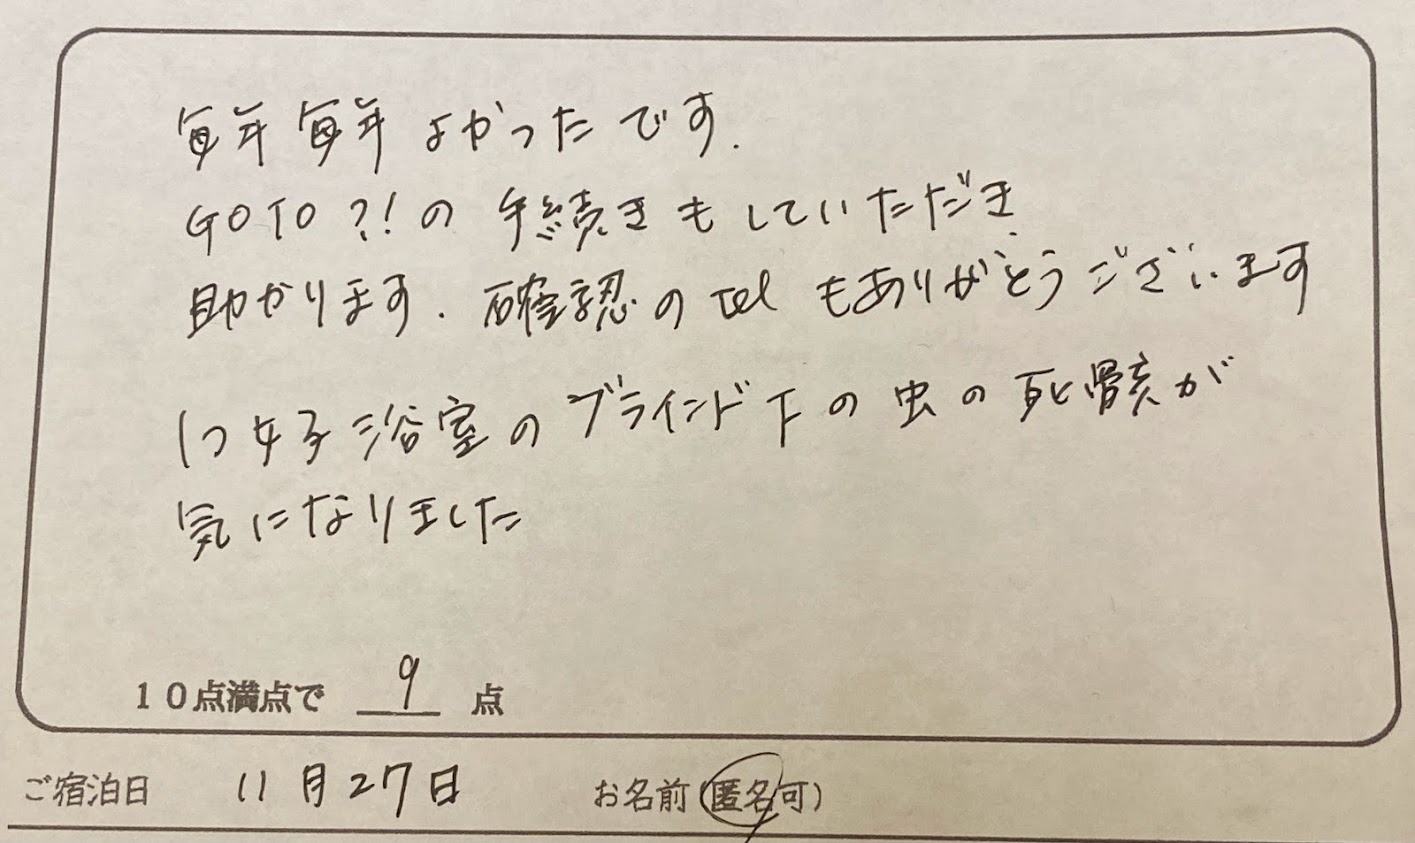 毎年毎年よかったです.
GOTO?!の手続きもしていただき
助かります. 確認のtelもありがとうございます
1つ女子浴室のブラインド下の虫の死骸が
気になりました
10点満点で 9 点
ご宿泊日 11月27日 お名前(匿名可)